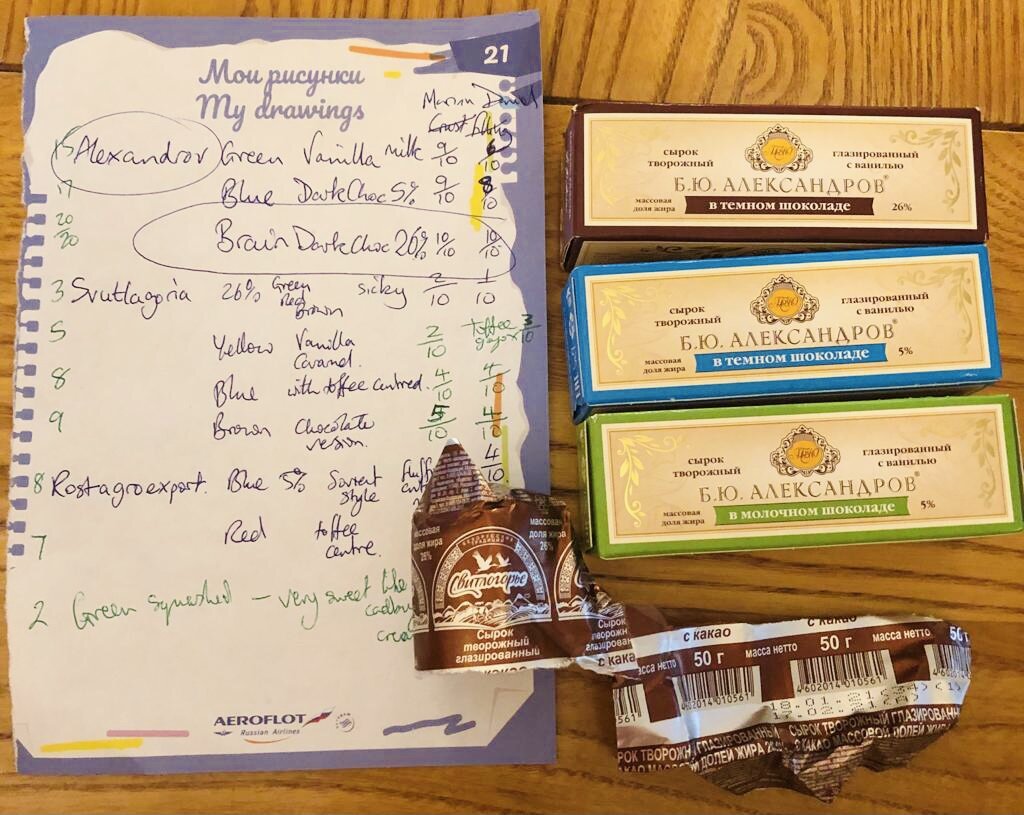 21
Мои рисунки
My drawings
15 Alexandrov Green Vanilla milk 9/10 6/10
17 Blue Dark Choc 5% 9/10 8/10
20/20 Brain Dark Choc 26% 10/10 10/10
3 Svutlagoria 26% Green Red Brown sicky 2/10 1/10
5 Yellow Vanilla Caramel. 2/10 toffee 3/10
8 Blue with toffee centred. 4/10 4/10
9 Brown Chocolate version. 5/10 4/10
8 Rostagroexport. Blue 5% style 4/10
7 Red toffee centre.
2 Green squashed – very sweet like
AEROFLOT
Russian Airlines
сырок творожный
глазированный с ванилью
Б.Ю. АЛЕКСАНДРОВ®
массовая доля жира
в темном шоколаде
26%
сырок творожный
глазированный с ванилью
Б.Ю. АЛЕКСАНДРОВ®
массовая доля жира
в темном шоколаде
5%
сырок творожный
глазированный с ванилью
Б.Ю. АЛЕКСАНДРОВ®
массовая доля жира
в молочном шоколаде
5%
массовая доля жира 26%
массовая доля жира 26%
Свитлогорье
Сырок творожный глазированный
с какао
50 г масса нетто 50 г масса нетто
4602014010561 4602014010561
18.01.21